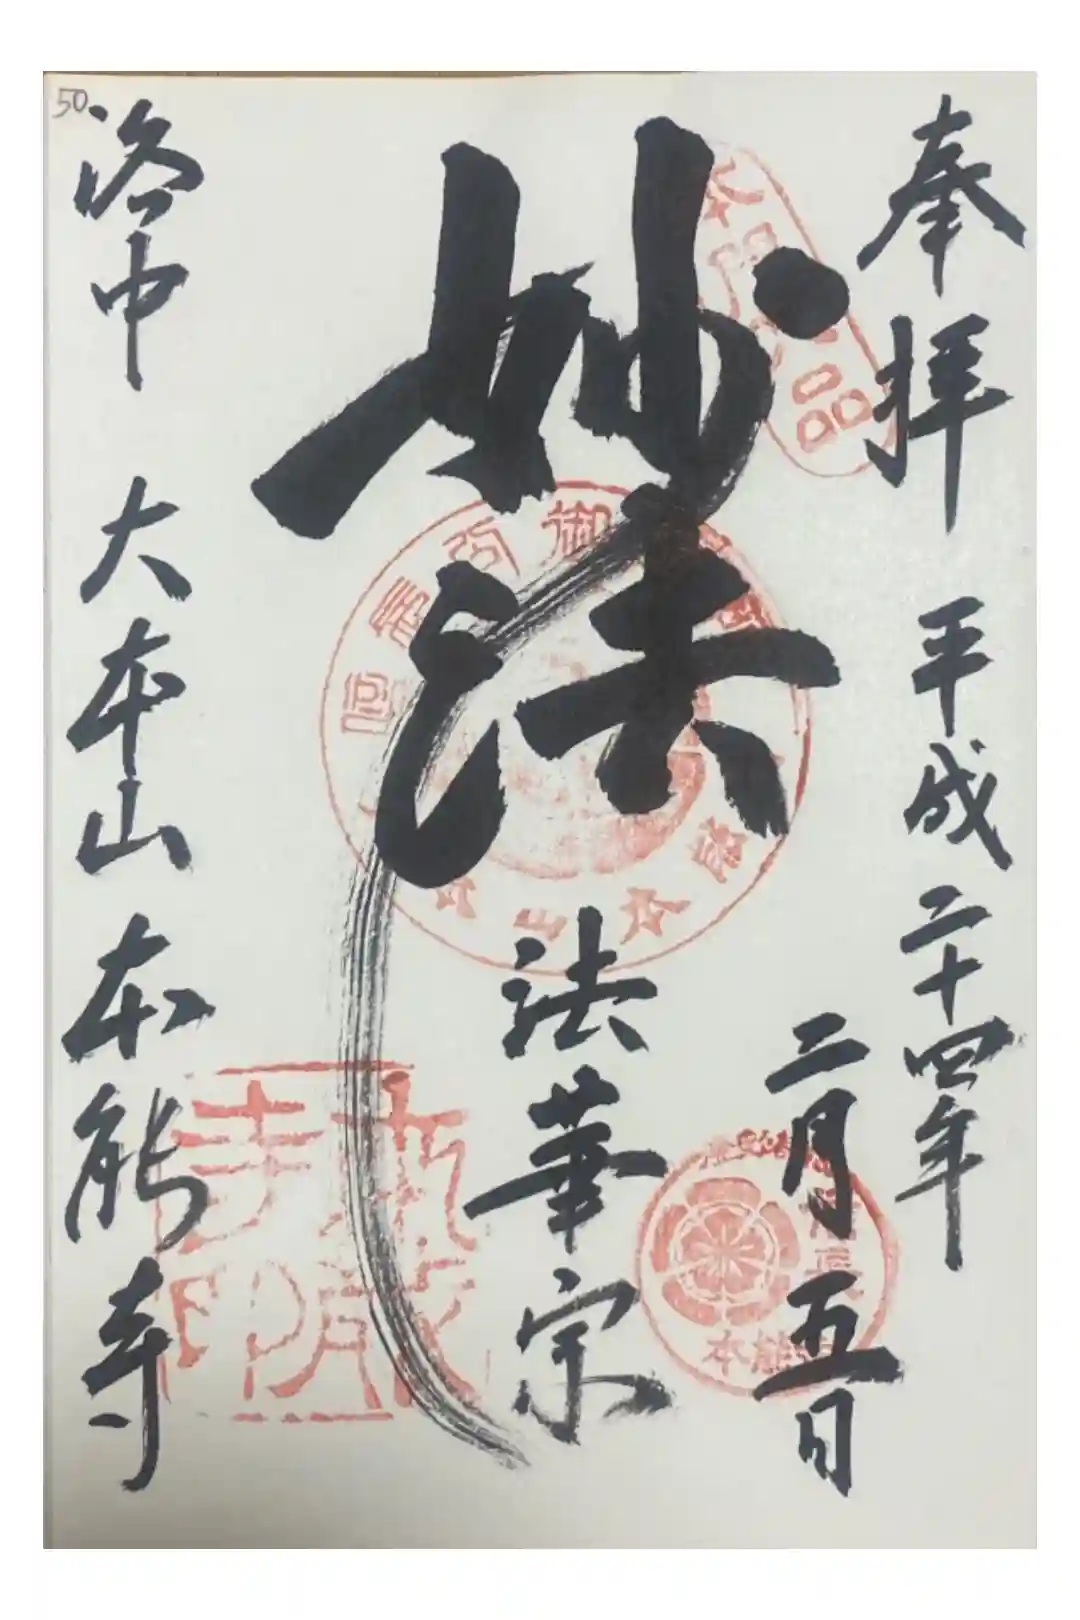 奉拝 平成二十四年
二月五日
妙法
法華宗
洛中 大本山 本能寺
50
本門八品
本能寺